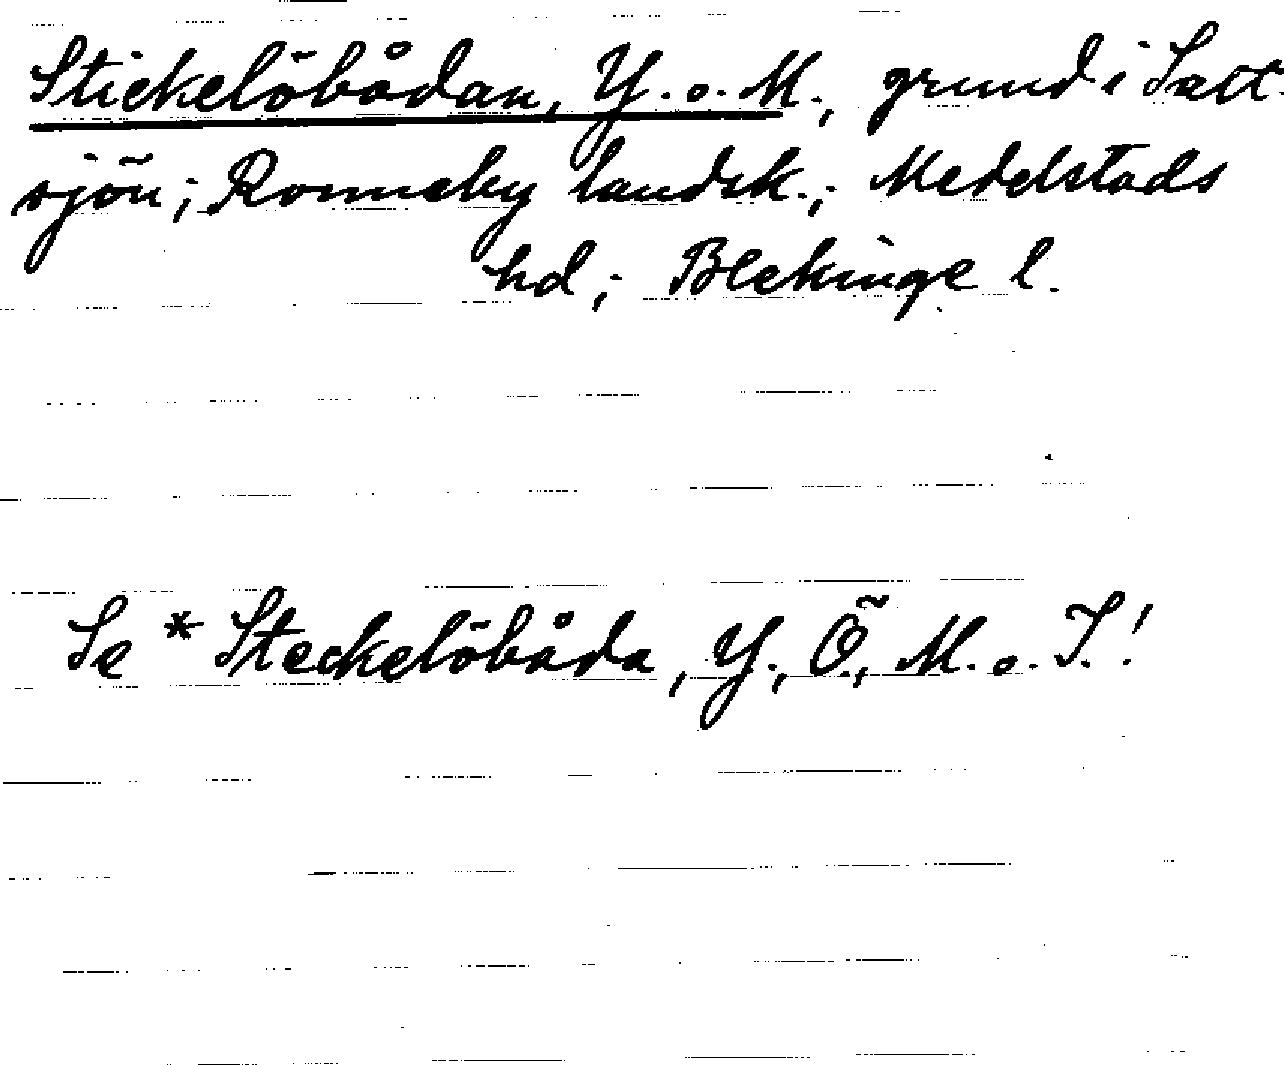 Stickelöbådan, Y. o. M., grund i Salt-
sjön; Ronneby landsk.; Medelstads
hd; Blekinge l.
Se * Steckelöbåda, Y., Ö., M. o. I.!